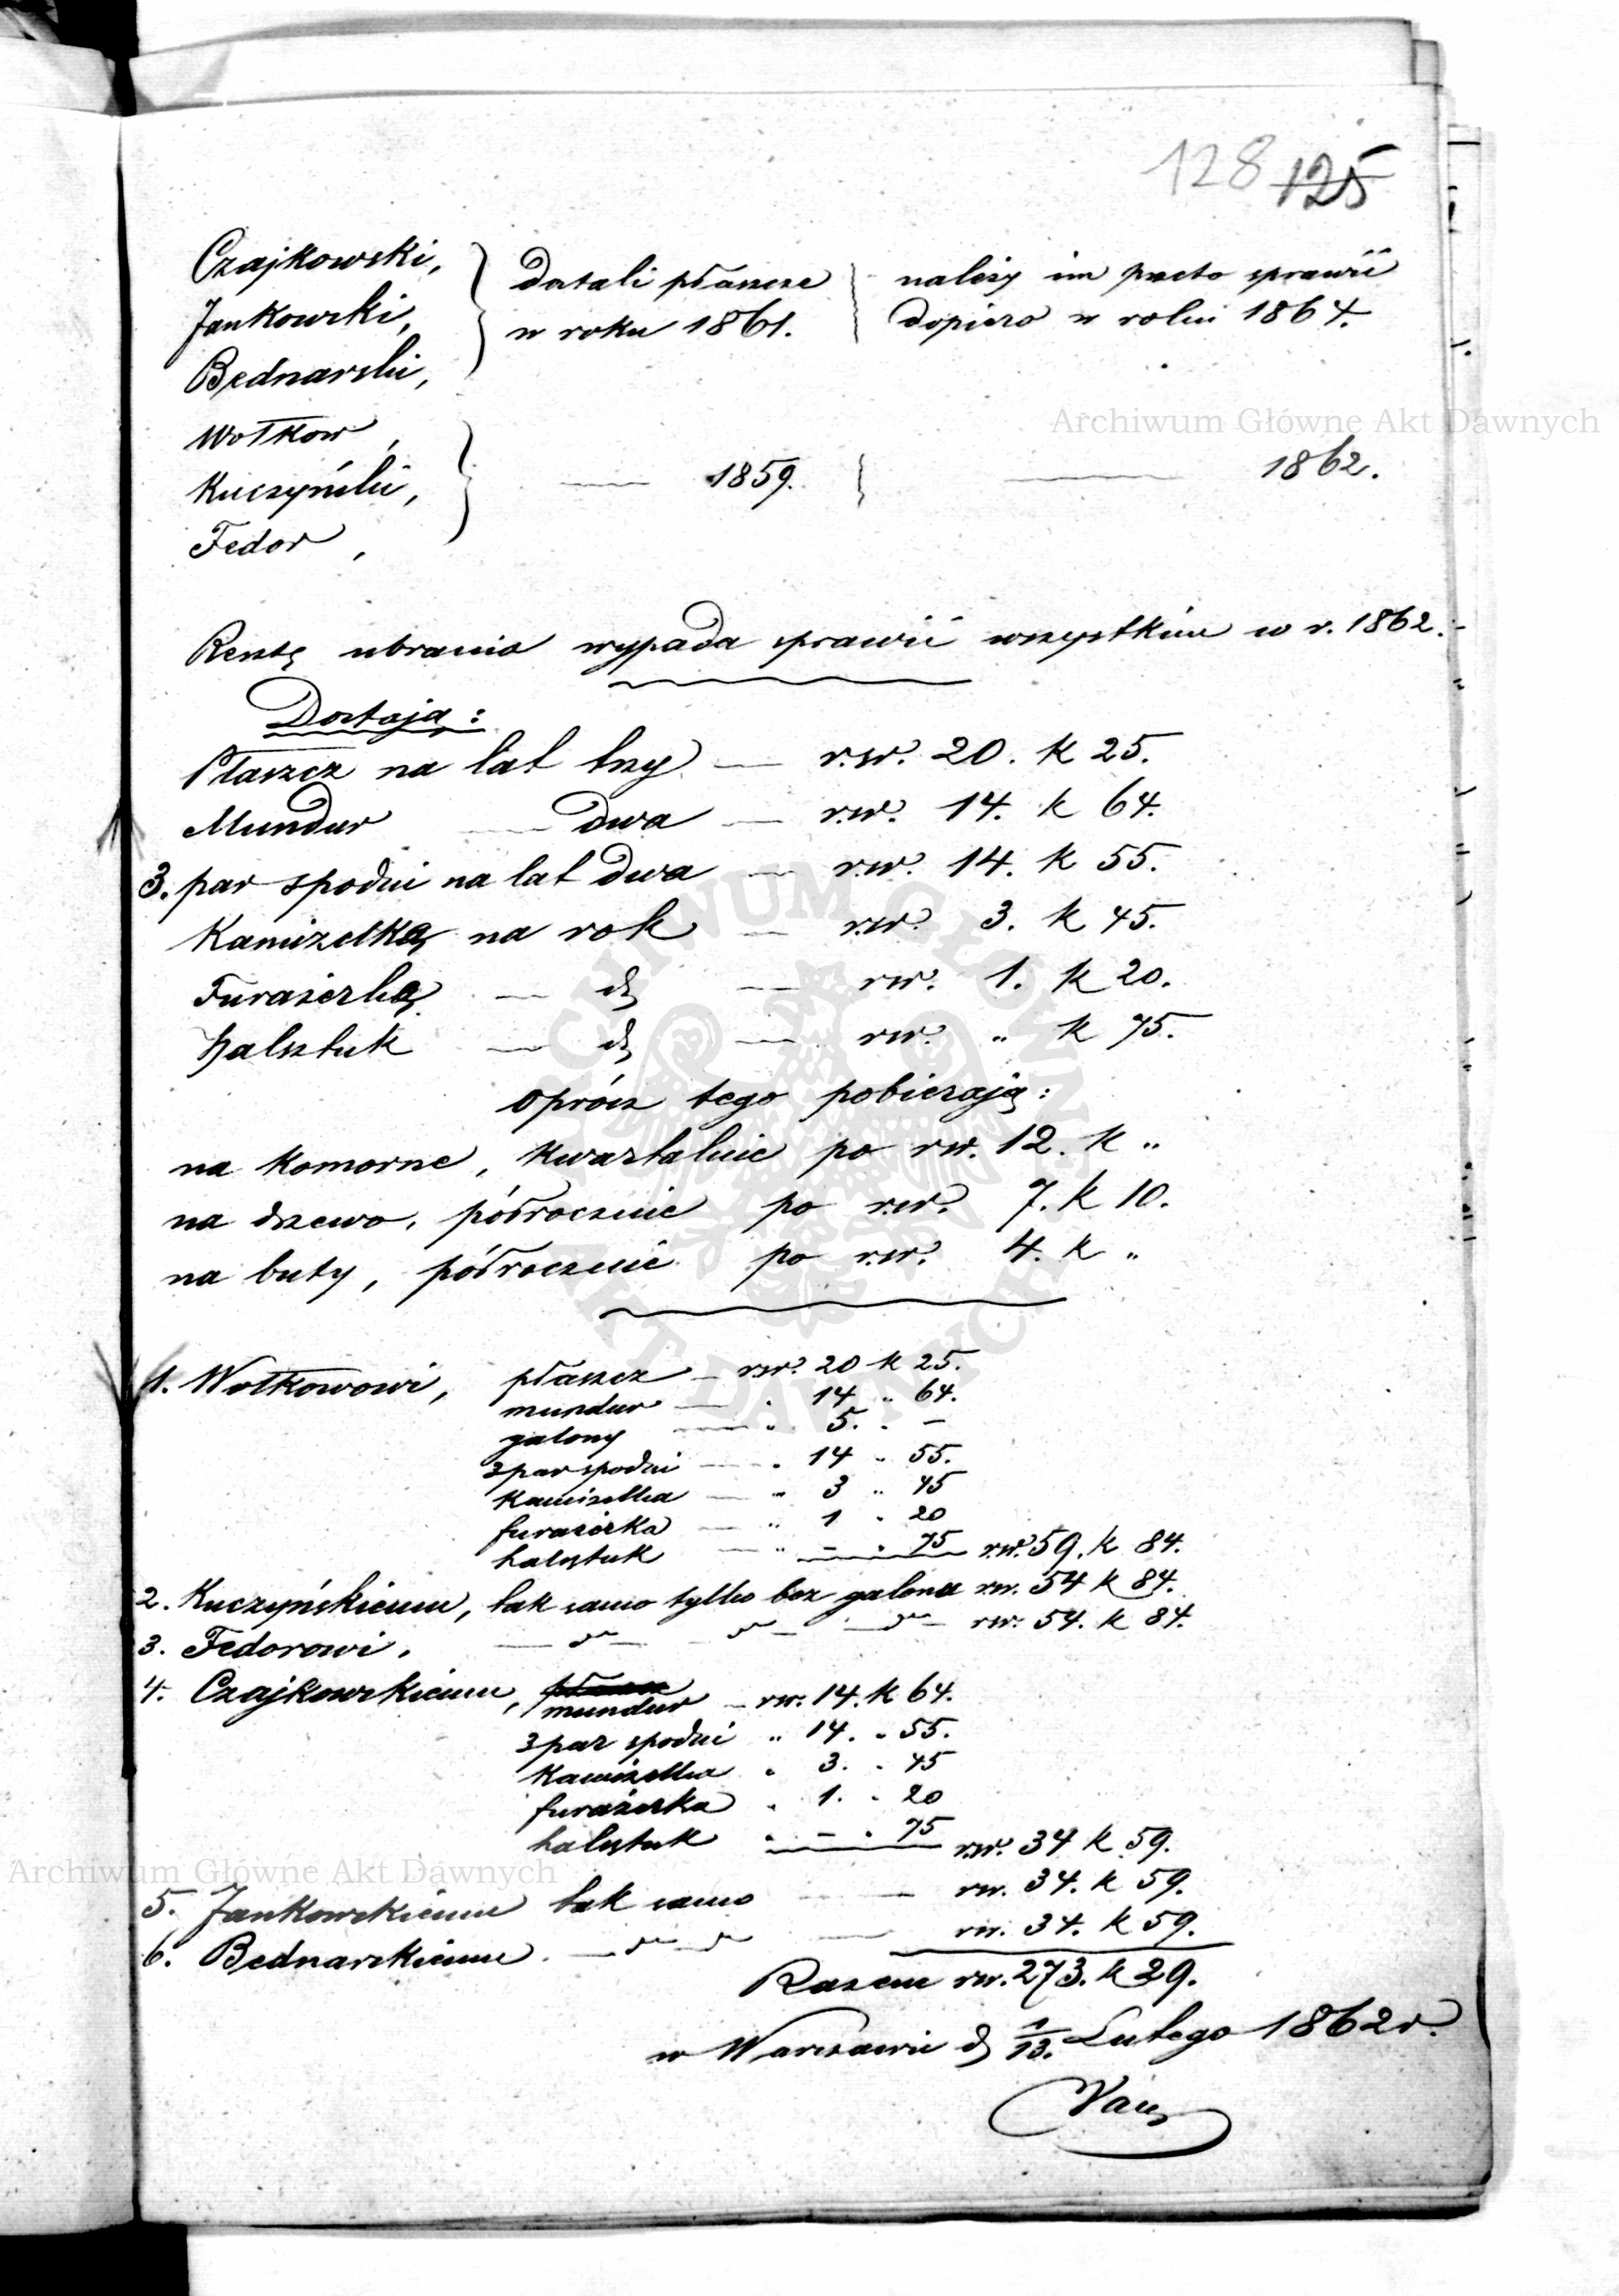 128 125
Czajkowski, } dostali płaszcze } należy im przeto sprawić
Jankowski, w roku 1861. dopiero w roku 1864.
Bednarski,
Wołkow,
Kuczyński, } — 1859. } — 1862.
Fedor,
Archiwum Główne Akt Dawnych
Resztę ubrania wypada sprawić wszystkim w r. 1862.
Dostają:
Płaszcz na lat trzy — rsr. 20. k 25.
Mundur — dwa — rsr. 14. k 64.
3. par spodni na lat dwa — rsr. 14. k 55.
Kamizelkę na rok — rsr. 3. k 45.
Furażerkę — d — rsr. 1. k 20.
halsztuk — d — rsr. " k 75.
oprócz tego pobierają:
na komorne, kwartalnie po rsr. 12. k "
na drzewo, półrocznie po rsr. 7. k 10.
na buty, półrocznie po rsr. 4. k "
ARCHIWUM GŁÓWNE AKT DAWNYCH
1. Wołkowowi, płaszcz — rsr. 20 k 25.
mundur — " 14 " 64.
galony — " 5. " —
3 par spodni — " 14 " 55.
kamizelka — " 3 " 45
furażerka — " 1 " 20
halsztuk — " — " 75 rsr. 59. k 84.
2. Kuczyńskiemu, tak samo tylko bez galonu rsr. 54 k 84.
3. Fedorowi, — do — do — do — rsr. 54. k 84.
4. Czajkowskiemu, płaszcz
mundur — rsr. 14. k 64.
3 par spodni " 14. " 55.
kamizelka " 3. " 45
furażerka " 1. " 20
halsztuk " — " 75 rsr. 34 k 59.
Archiwum Główne Akt Dawnych
5. Jankowskiemu tak samo — rsr. 34. k 59.
6. Bednarskiemu — do — do — rsr. 34. k 59.
Razem rsr. 273. k 29.
w Warszawie d 1/13. Lutego 1862 r.